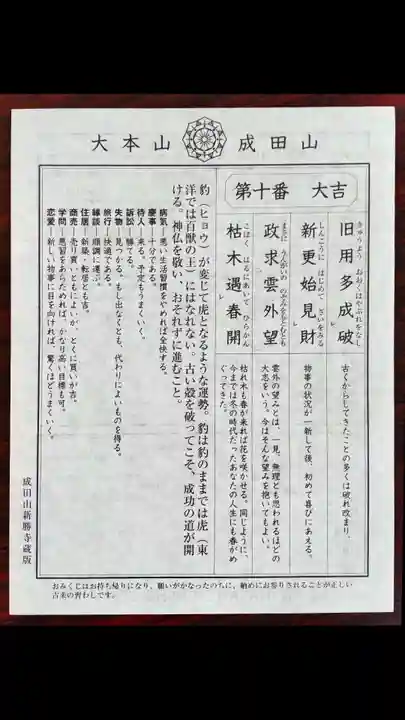 大本山 成田山
第十番 大吉
旧用多成破
きゅうよう おおくはやぶれをなし
古くからしてきたことの多くは破れ改まり、
新更始見財
しんこうに はじめて ざいをみる
物事の状況が一新して後、初めて喜びにあえる。
政求雲外望
まさに うんがいの のぞみをもとむとも
雲外の望みとは、一見、無理とも思われるほどの
大志をいう。今はそんな望みを抱いてもよい。
枯木遇春開
こぼく はるにあいて ひらかん
枯れ木も春が来れば花を咲かせる。同じように、
今までは冬の時代だったあなたの人生にも春がめ
ぐってきた。
豹(ヒョウ)が変じて虎となるような運勢。豹は豹のままでは虎(東
洋では百獣の王)にはなれない。古い殻を破ってこそ、成功の道が開
ける。神仏を敬い、おそれずに進むこと。
病気―悪い生活習慣をやめれば全快する。
慶事―十分である。
待人―来る。予定もうまくいく。
訴訟―勝てる。
失物―見つかる。もし出なくとも、代わりによいものを得る。
旅行―快適である。
縁談―順調に運ぶ。
住居―新築・転居とも吉。
商売―売り買いともによいが、とくに買いが吉。
学問―悪習をあらためれば、かなり高い目標も可。
恋愛―新しい物事に目を向ければ、驚くほどうまくいく。
成田山新勝寺蔵版
おみくじはお持ち帰りになり、願いがかなったのちに、納めにお参りされることが正しい
古来の習わしです。